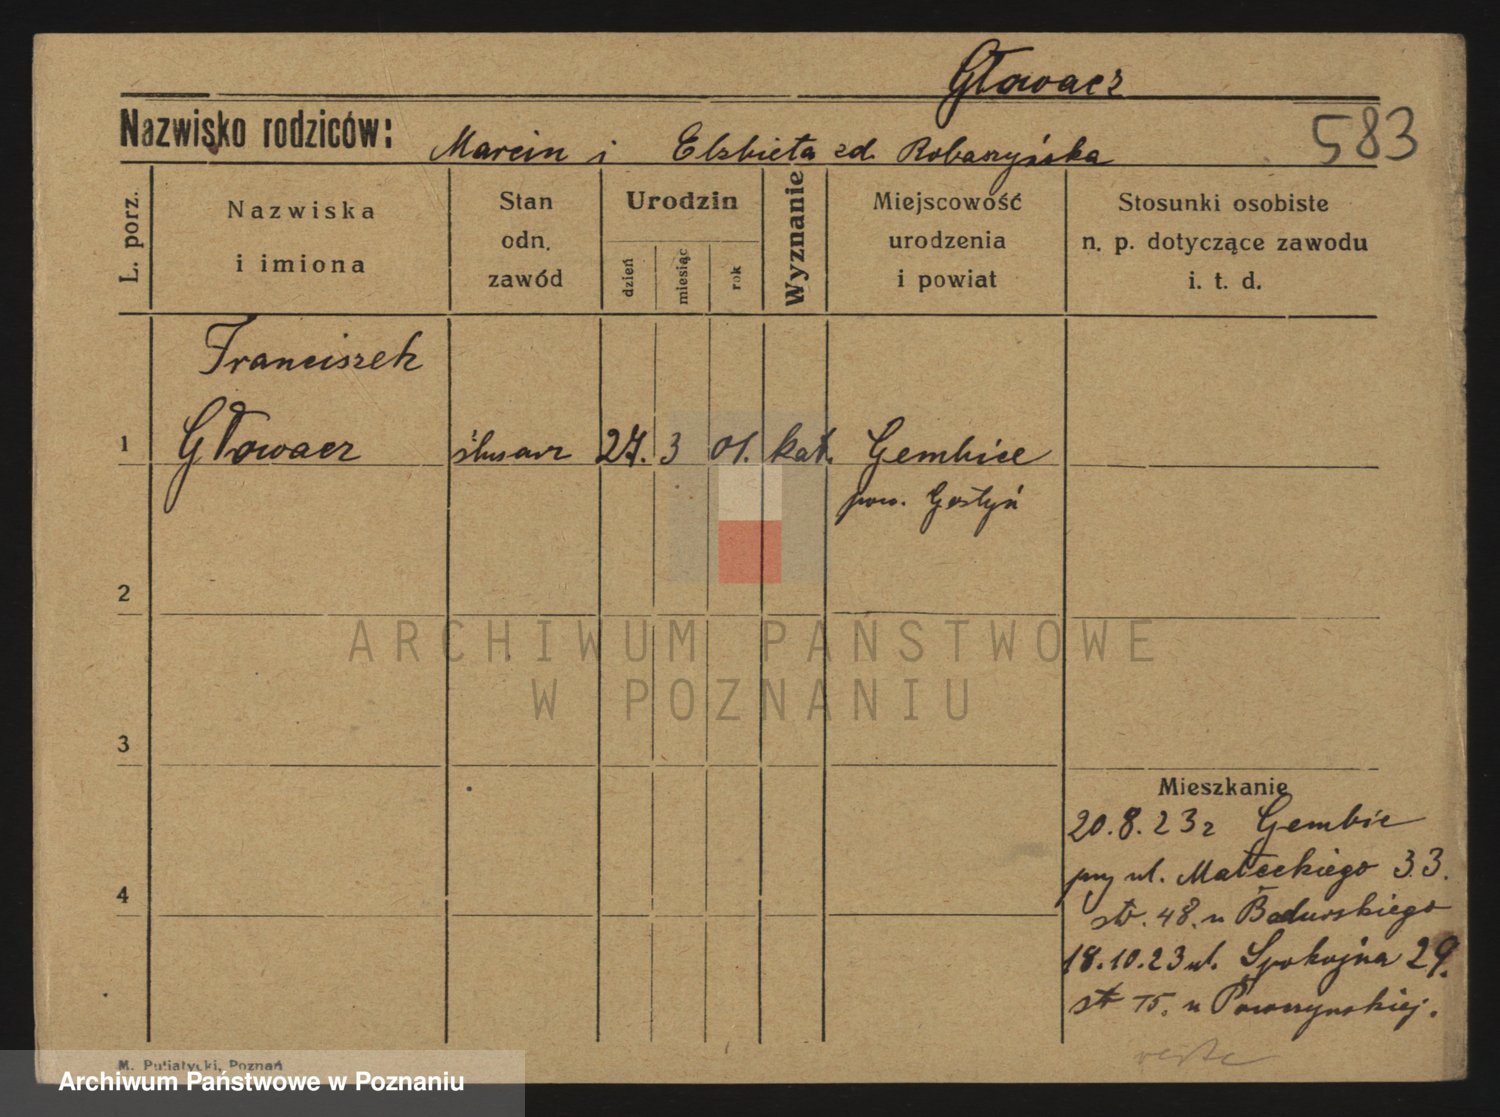 Głowacz
Nazwisko rodziców: Marcin i Elzbieta zd. Robaszyńska
583
L. porz.
Nazwiska
i imiona
Stan
odn.
zawód
Urodzin
dzień
miesiąc
rok
Wyznanie
Miejscowość
urodzenia
i powiat
Stosunki osobiste
n. p. dotyczące zawodu
i. t. d.
Franciszek
1 Głowacz ślusarz 27. 3 01. kat. Gembice
pow. Gostyń
2
ARCHIWUM PAŃSTWOWE
W POZNANIU
3
Mieszkanie
20.8.23 r Gembic
przy ul. Małeckiego 33.
4
str. 48. u Badurskiego
18.10.23 ul. Spokojna 29.
st 15. u
M. Putiatycki, Poznań
Archiwum Państwowe w Poznaniu